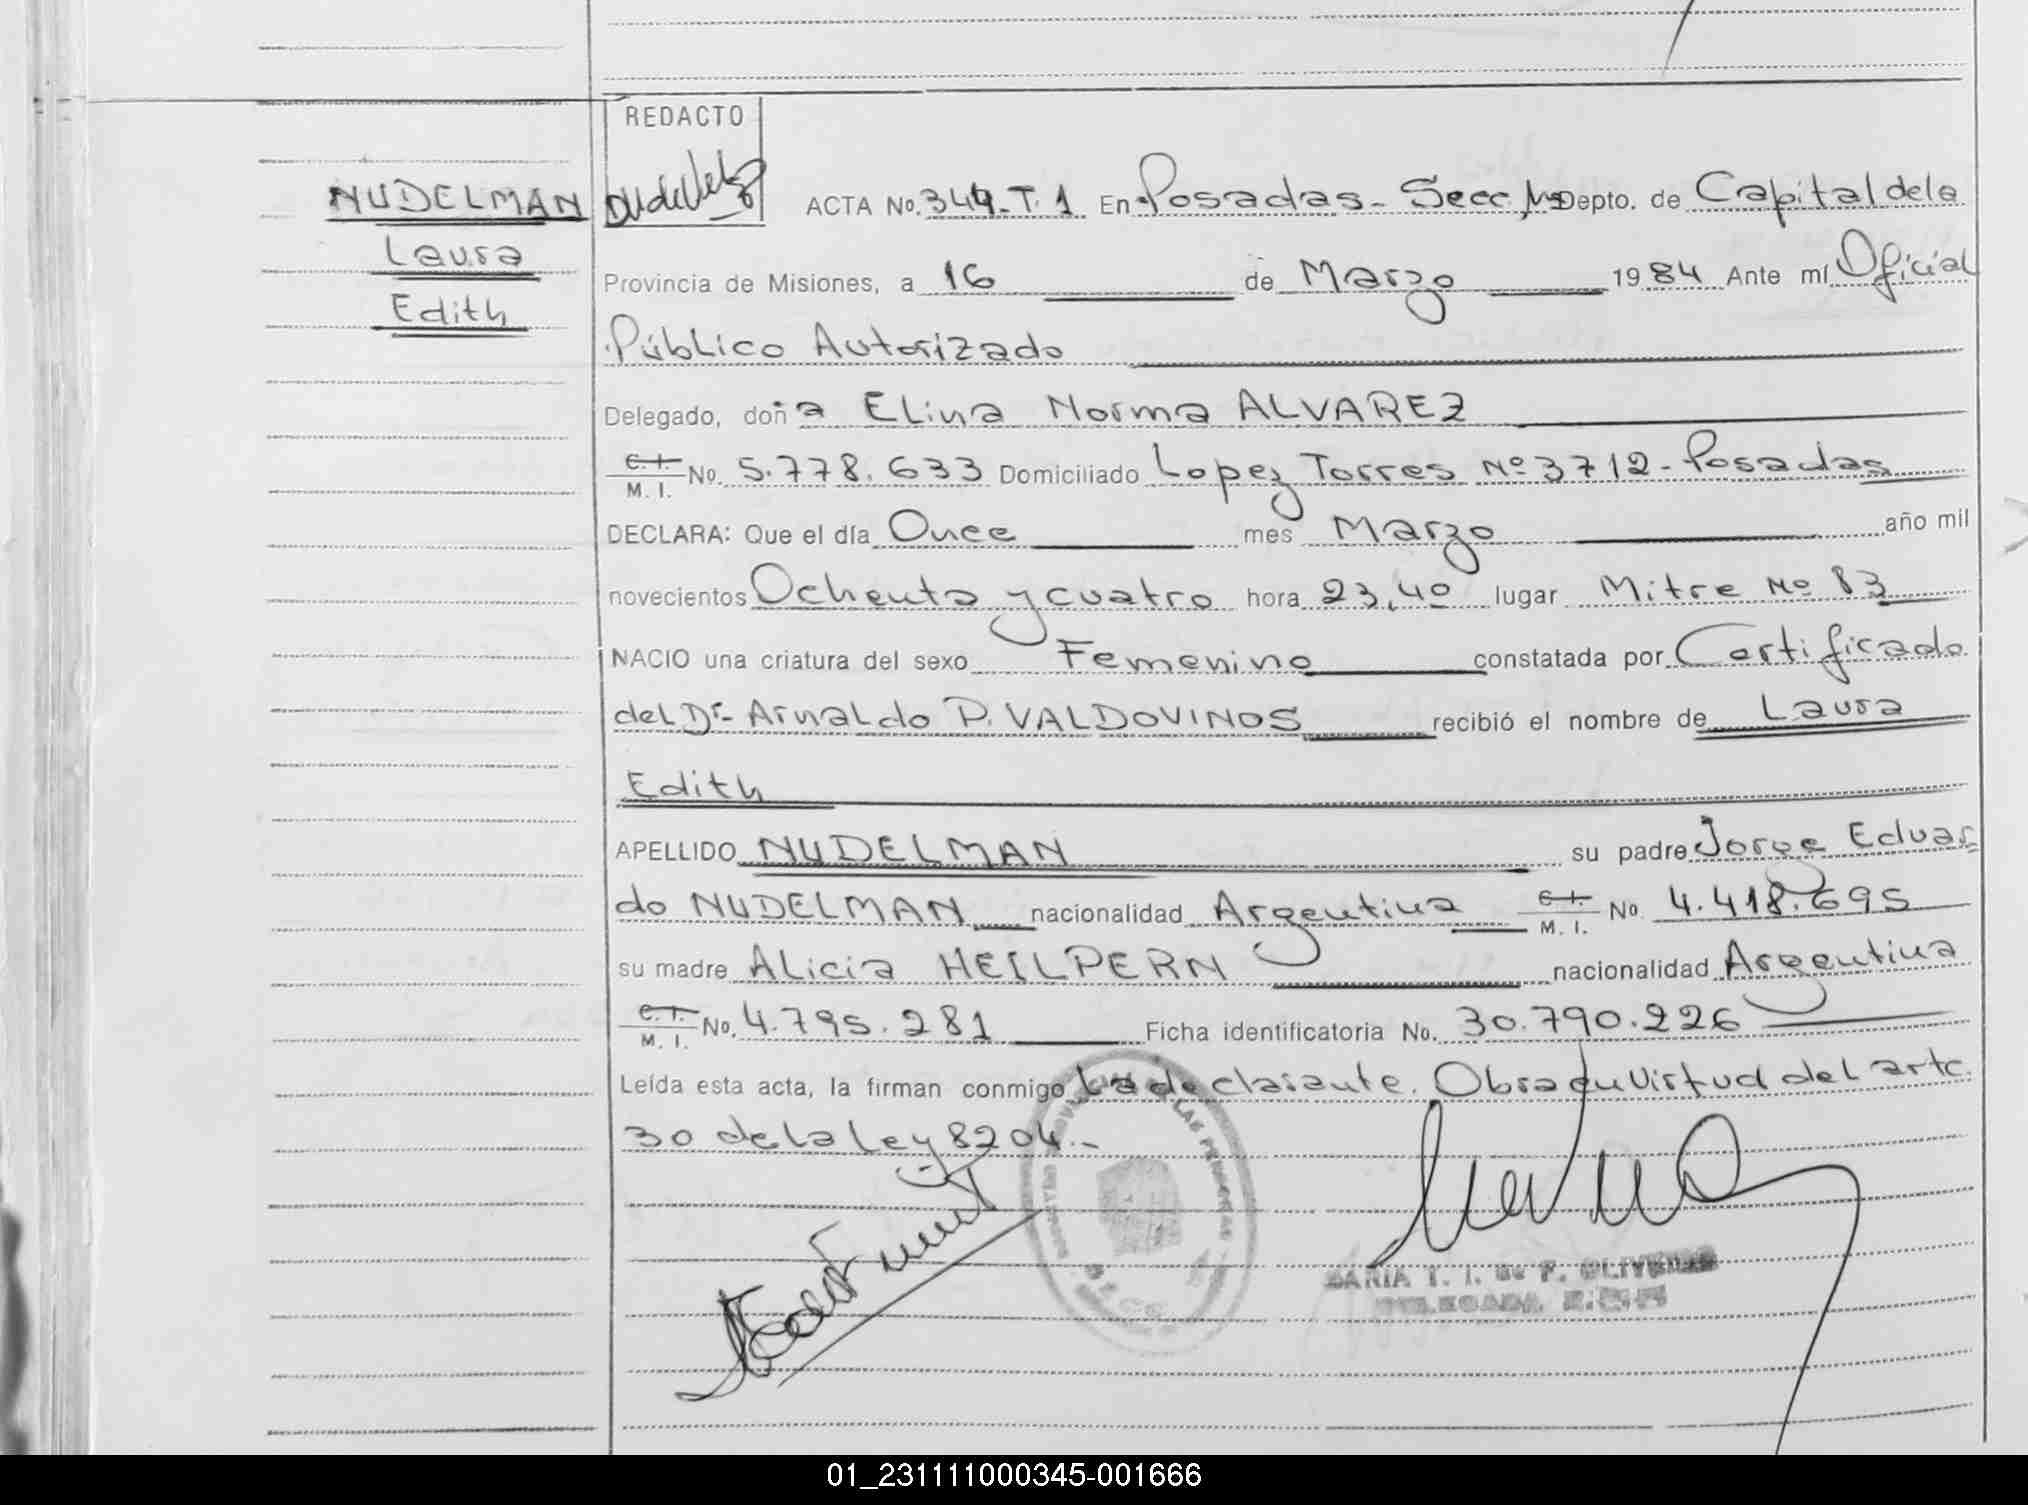 REDACTO
NUDELMAN
Laura
Edith
ACTA No. 344-T.1 En Posadas - Secc Depto. de Capital de la
Provincia de Misiones, a 16 de Marzo 1984 Ante mí Oficial
Público Autorizado
Delegado, doña Elina Norma ALVAREZ
C.I. M.I. No. 5.778.633 Domiciliado Lopez Torres Nº 3712 - Posadas
DECLARA: Que el día Once mes Marzo año mil
novecientos Ochenta y cuatro hora 23,40 lugar Mitre Nº 83
NACIO una criatura del sexo Femenino constatada por Certificado
del Dr. Arnaldo P. VALDOVINOS recibió el nombre de Laura
Edith
APELLIDO NUDELMAN su padre Jorge Eduar
do NUDELMAN nacionalidad Argentina C.I. M.I. No. 4.418.695
su madre Alicia HEILPERN nacionalidad Argentina
C.I. M.I. No. 4.795.281 Ficha identificatoria No. 30.790.226
Leída esta acta, la firman conmigo La declarante. Obra en Virtud del artc.
30 de la Ley 8204.-
MARIA T. I. de F. OLIVEIRA
DELEGADA
01_231111000345-001666